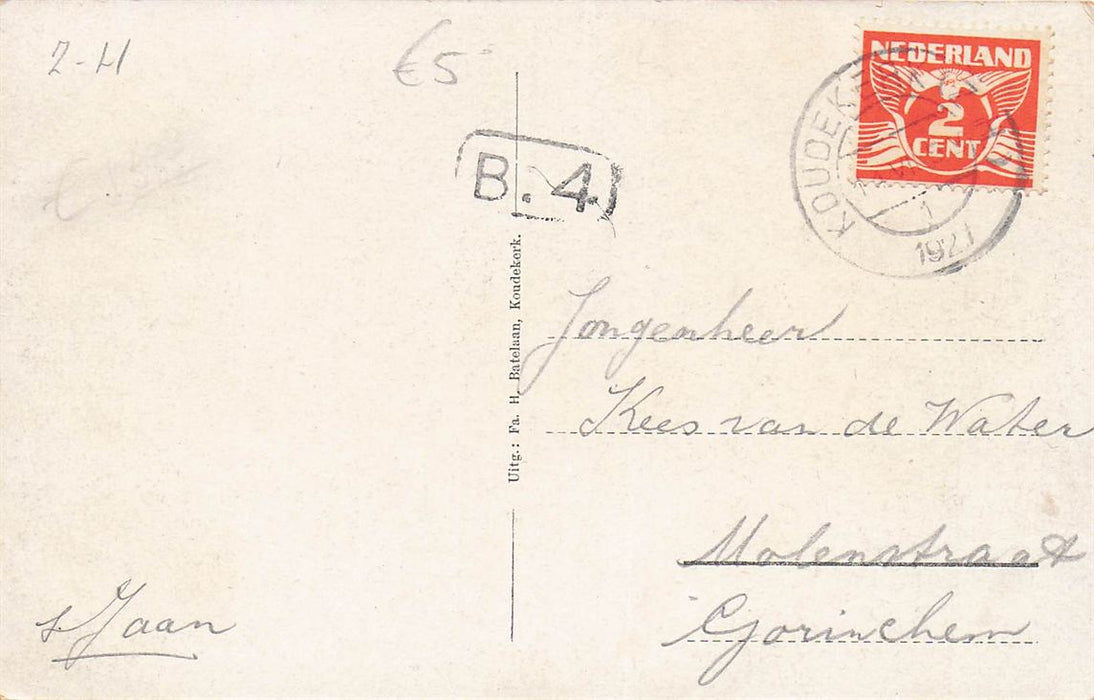 Z-H
€5
NEDERLAND
2
CENT
KOUDEKE
B.4
Uitg.: Fa. H. Batelaan, Koudekerk.
Jongenheer
Kees van de Water
Molenstraat
Gorinchem
Jaan